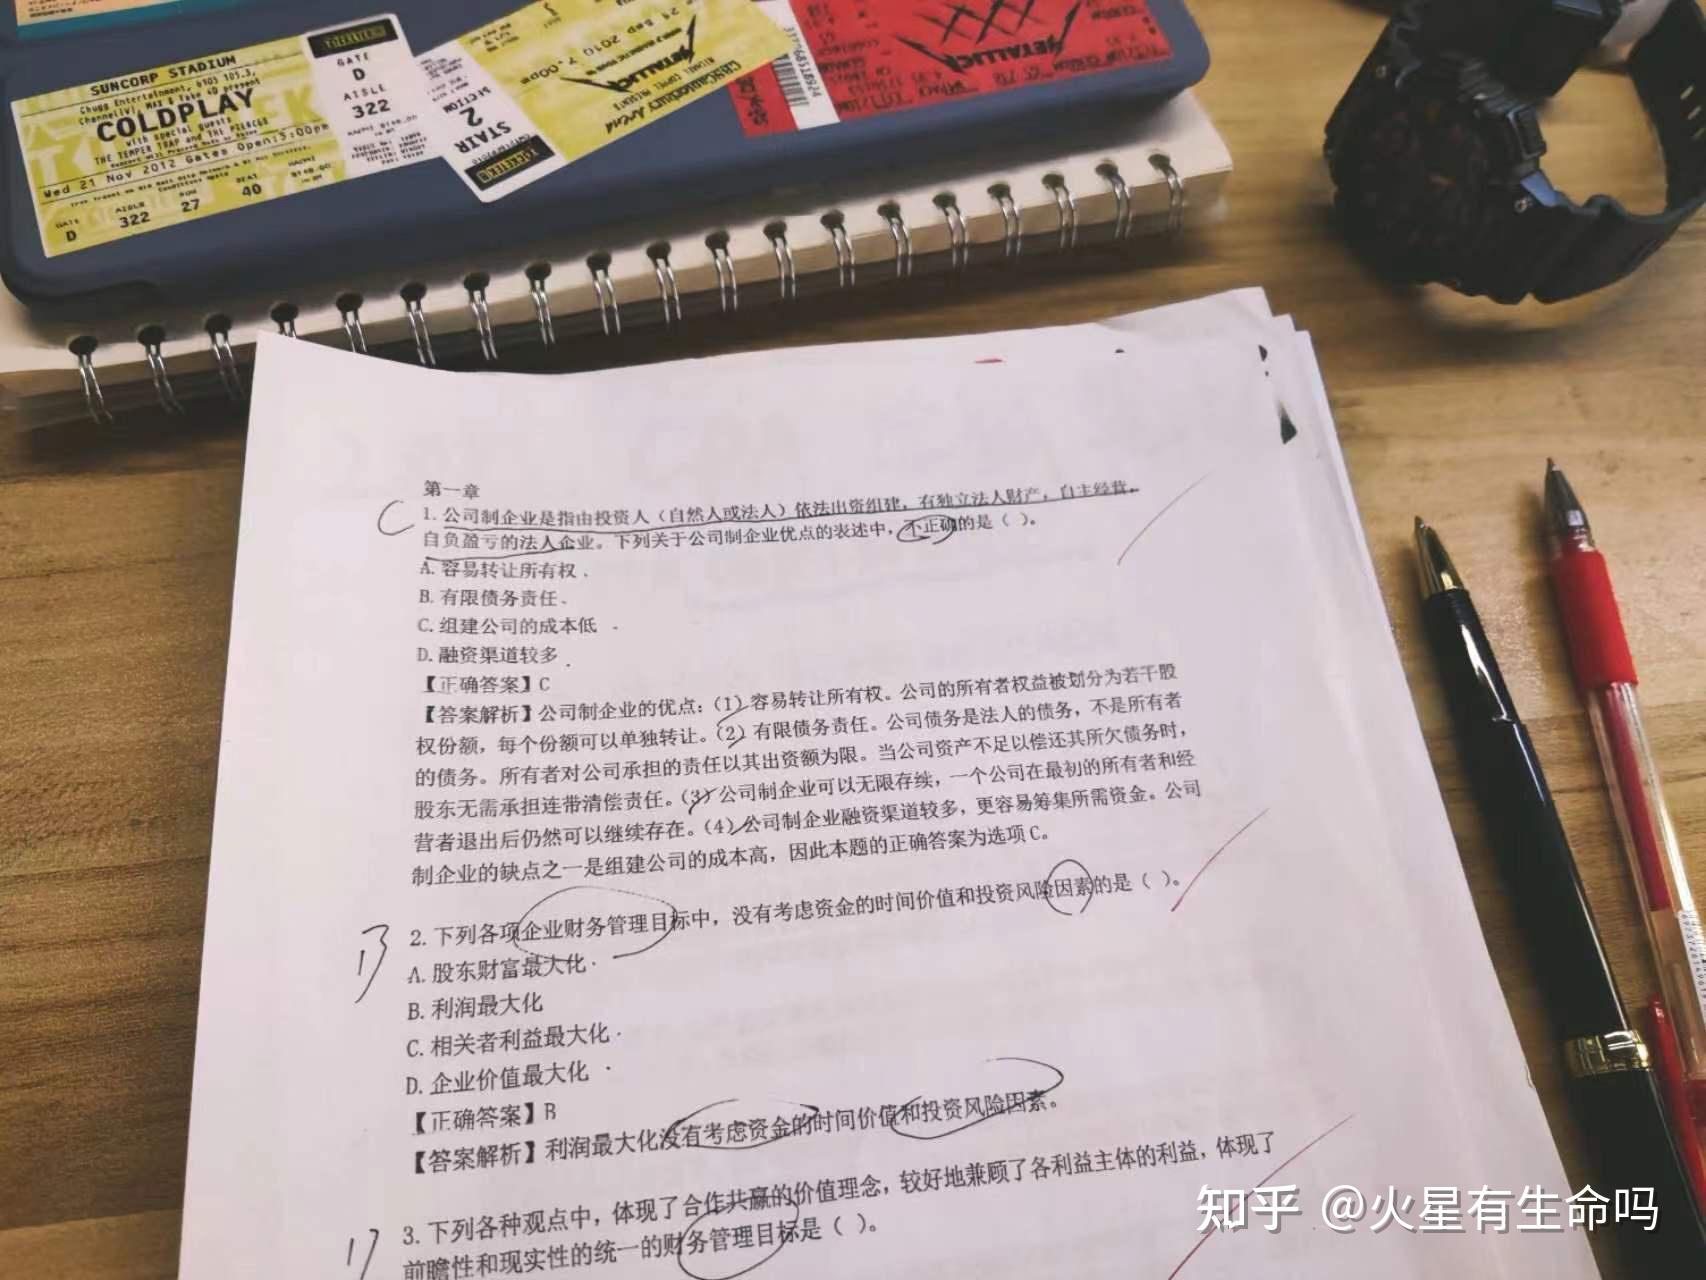 SUNCORP STADIUM
Chugg Entertainment,
Channel[V], MAX & Take 40 present
COLDPLAY
with special guests
THE TEMPER TRAP and THE PIERCES
Wed 21 Nov 2012 Gates Open:5:00pm
GATE
D
AISLE
322
SEAT
40
GATE AISLE ROW
D 322 27
TICKETEK
STAIR
2
SECTION
TICKETEK
METALLICA
7.00pm
METALLICA
第一章
C
1. 公司制企业是指由投资人（自然人或法人）依法出资组建，有独立法人财产，自主经营、
自负盈亏的法人企业。下列关于公司制企业优点的表述中，不正确的是（ ）。
A. 容易转让所有权
B. 有限债务责任
C. 组建公司的成本低
D. 融资渠道较多
【正确答案】C
【答案解析】公司制企业的优点：（1）容易转让所有权。公司的所有者权益被划分为若干股
权份额，每个份额可以单独转让。（2）有限债务责任。公司债务是法人的债务，不是所有者
的债务。所有者对公司承担的责任以其出资额为限。当公司资产不足以偿还其所欠债务时，
股东无需承担连带清偿责任。（3）公司制企业可以无限存续，一个公司在最初的所有者和经
营者退出后仍然可以继续存在。（4）公司制企业融资渠道较多，更容易筹集所需资金。公司
制企业的缺点之一是组建公司的成本高，因此本题的正确答案为选项 C。
B
2. 下列各项企业财务管理目标中，没有考虑资金的时间价值和投资风险因素的是（ ）。
A. 股东财富最大化
B. 利润最大化
C. 相关者利益最大化
D. 企业价值最大化
【正确答案】B
【答案解析】利润最大化没有考虑资金的时间价值和投资风险因素。
3. 下列各种观点中，体现了合作共赢的价值理念，较好地兼顾了各利益主体的利益，体现了
前瞻性和现实性的统一的财务管理目标是（ ）。
知乎 @火星有生命吗